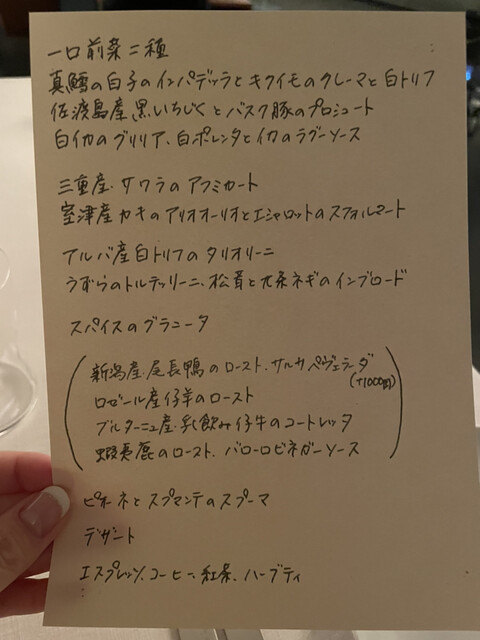 一口前菜二種
真鱈の白子のインパデッラとキクイモのクレーマと白トリフ
佐渡島産黒いちじくとバスク豚のプロシュート
白イカのグリリア、白ポレンタとイカのラグーソース
三重産・サワラのアフミカート
室津産カキのアリオオーリオとエシャロットのスフォルマート
アルバ産白トリフのタリオリーニ
うずらのトルテッリーニ、松茸と九条ネギのインブロード
スパイスのグラニータ
新潟産・尾長鴨のロースト・サルサペヴェラーダ
(+1000円)
ロゼール産仔羊のロースト
ブルターニュ産・乳飲み仔牛のコートレッタ
蝦夷鹿のロースト、バローロビネガーソース
ピオーネとスプマンテのスプーマ
デザート
エスプレッソ、コーヒー、紅茶、ハーブティ